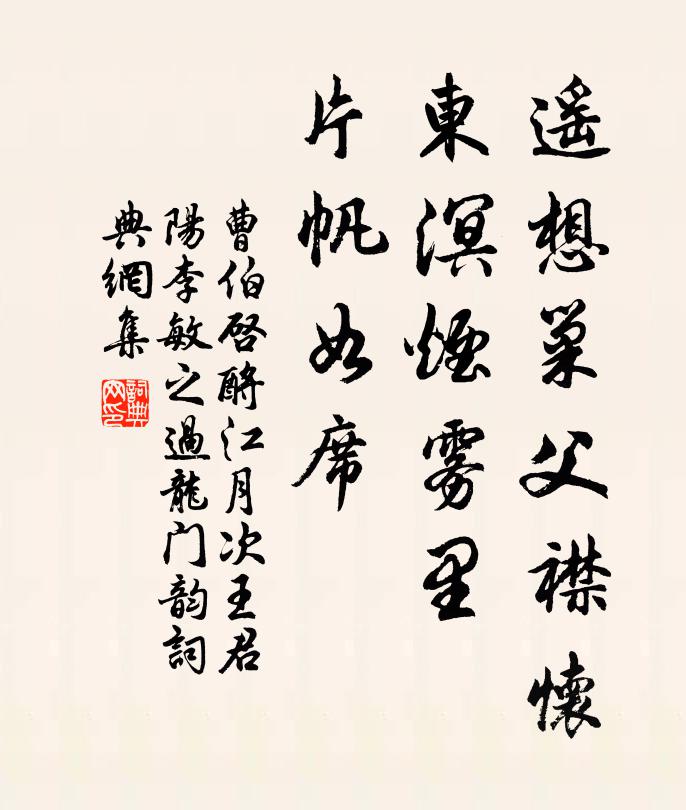 遥想巢父襟懷
東溟煙雾里
片帆如席
曹伯啓酹江月次王君
陽李敏之過龍门韵詞
典網集
詞典网印